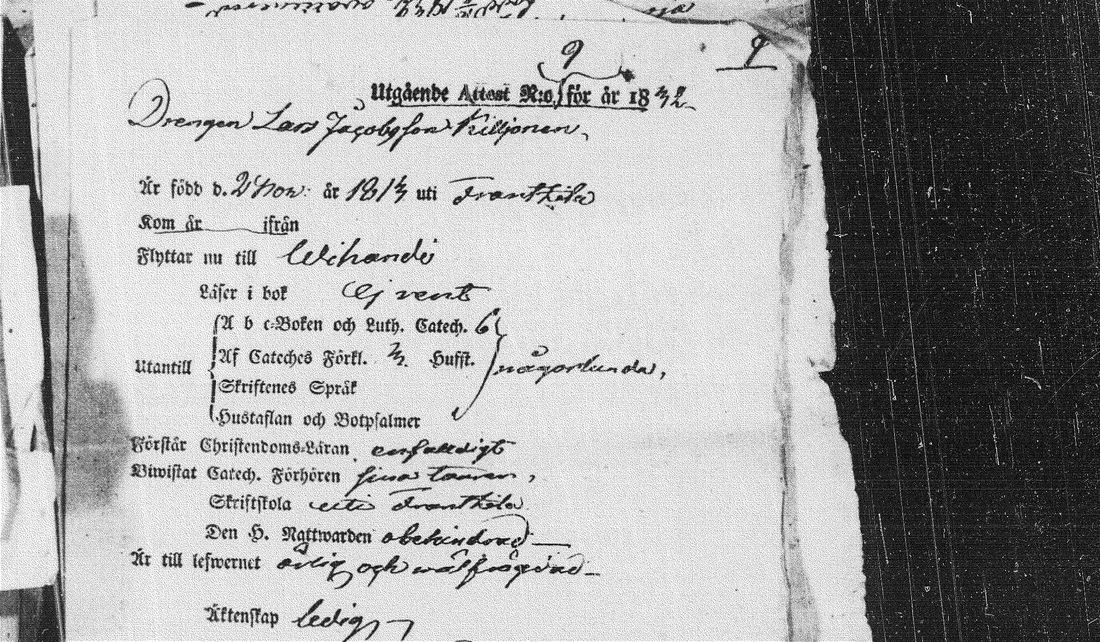 9 9
Utgående Attest N:o, för år 1832
Drengen Lars Jacobsson Kiljonen,
Är född d. 2 Nov: år 1813 uti Frantsila
Kom år ifrån
Flyttar nu till Wihandi
Läser i bok Ej rent
Utantill
A b c-Boken och Luth. Catech. 6
Af Cateches Förkl. Hufst. någorlunda,
Skriftenes Språk
Hustaflan och Botpsalmer
Förstår Christendoms-Läran enfaldigt
Biwistat Catech. Förhören sina Tourer,
Skriftskola uti Frantsila
Den H. Nattwarden obehindrad
Är till lefwernet ärlig och wälfrägdad
Äktenskap ledig